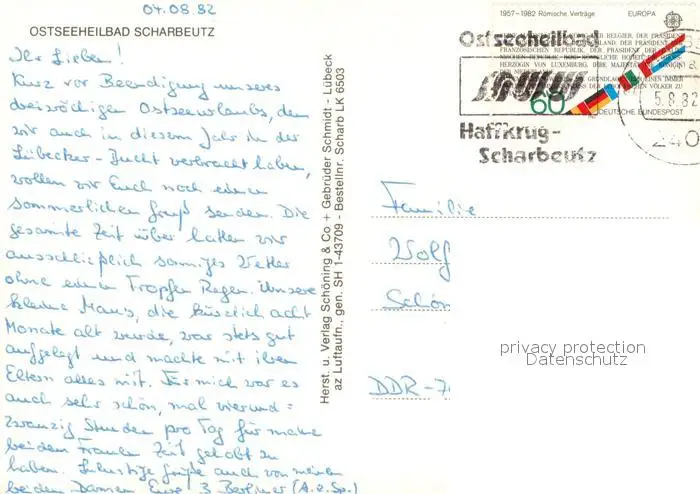 04.08.82
OSTSEEHEILBAD SCHARBEUTZ
Ihr Lieben!
Kurz vor Beendigung unseres
dreiwöchigen Ostseeurlaubs, den
wir auch in diesem Jahr in der
Lübecker-Bucht verbracht haben,
wollen wir Euch noch einen
sommerlichen Gruß senden. Die
gesamte Zeit über hatten wir
ausschließlich sonniges Wetter
ohne einen Tropfen Regen. Unsere
kleine Maus, die kürzlich acht
Monate alt wurde, war stets gut
aufgelegt und machte mit ihren
Eltern alles mit. Für mich war es
auch sehr schön, mal vierund=
zwanzig Stunden pro Tag für meine
beiden Frauen Zeit gehabt zu
haben. Lustige Grüße auch von meinen
beiden Damen Eure 3 Berliner (A. z. Sp.)
Herst. u. Verlag Schöning & Co + Gebrüder Schmidt - Lübeck
az Luftaufn., gen. SH 1-43709 - Bestellnr. Scharb LK 6503
1957-1982 Römische Verträge EUROPA
60
DEUTSCHE BUNDESPOST
Ostseeheilbad
Haffkrug-
Scharbeutz
5.8.82
240
Familie
Wolf
Schön
DDR-7
privacy protection
Datenschutz